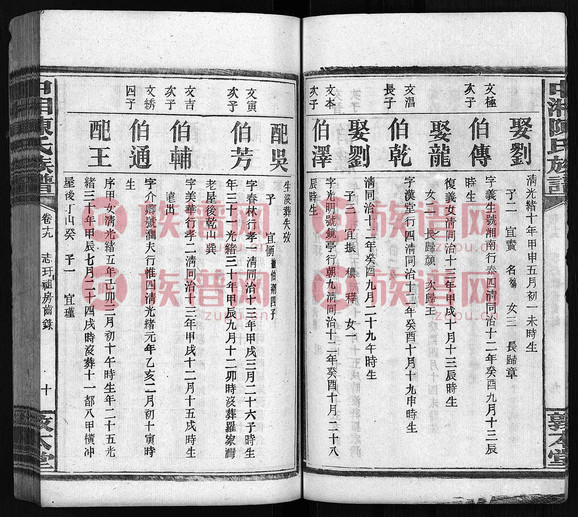 中湘陳氏族譜
敦本堂
娶劉
清光緒十年甲申五月初一未時生
子二 宜賓 名 女三 長歸章
文極
次子
伯傳
字義生號湘南行泰四清同治十二年癸酉九月十三辰
時生
娶龍
復義女清同治十三年甲戌十一月十三辰時生
女二 長歸顏 次歸王
文滔
長子
伯乾
字漢堂行四清同治十二年癸酉十月十九申時生
娶劉
清同治十一年癸酉九月二十九午時生
子三 宜振 穰 釋 女一
文本
次子
伯澤
字光明號鏡亭行朝九清同治十二年癸酉十月二十八
辰時生
配吳
生沒葬失攷
子 宜
文寅
次子
伯芳
字春林行孝一清同治十三年甲戌三月二十六子時生
年三十一光緒三十年甲辰九月十二卯時沒葬羅家灣
老屋後乾山巽
文吉
次子
伯輔
字美華行孝二清同治十三年甲戌十二月十五戌時生
遠出
文綉
四子
伯通
字介卿號彌夫行惟四清光緒元年乙亥二月初十寅時
生
配王
女清光緒五年己卯三月初十午時生年二十五光
緒三十年甲辰七月二十四戌時沒葬十一都八甲橫冲
屋後丁山癸 子一 宜瑾
中湘陳氏族譜
卷十九 志玗祖房齒錄
十
敦本堂
族譜网
zupu.cn
族譜网
zupu.cn
族譜网
zupu.cn
族譜网
zupu.cn